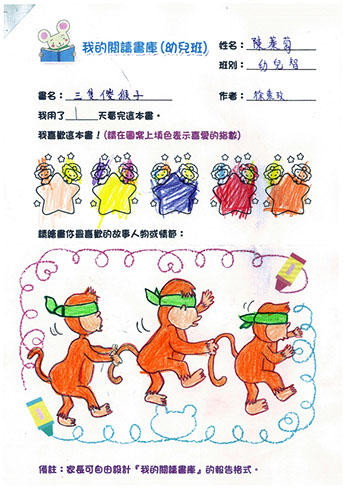 我的閱讀書庫(幼兒班)
姓名：陳義蒨
班別：幼兒智
書名：三隻傻猴子
作者：徐素玫
我用了 1 天看完這本書。
我喜歡這本書！(請在圖案上填色表示喜愛的指數)
請繪畫你最喜歡的故事人物或情節：
備註：家長可自由設計『我的閱讀書庫』的報告格式。